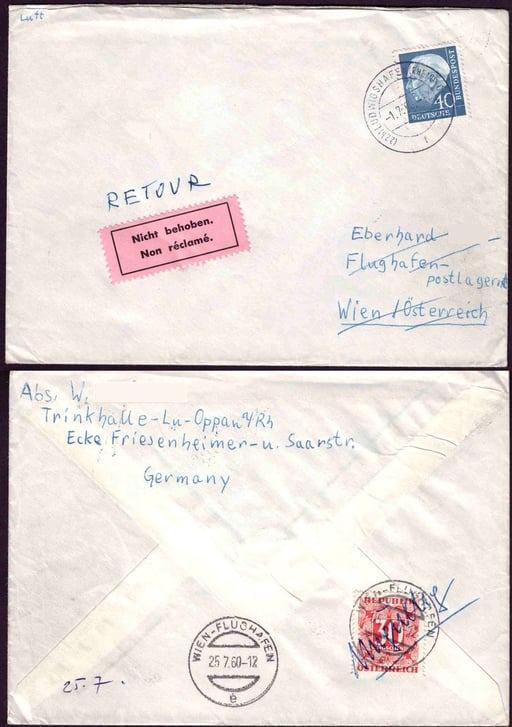 Luft
40
DEUTSCHE
BUNDESPOST
RETOUR
Nicht behoben.
Non réclamé.
Eberhard
Flughafen-
postlagernd
Wien/Österreich
Abs. W.
Trinkhalle-Lu-Oppau/Rh
Ecke Friesenheimer-u. Saarstr.
Germany
WIEN-FLUGHAFEN
REPUBLIK
30
ÖSTERREICH
WIEN-FLUGHAFEN
25.7.60-12
e
25.7.